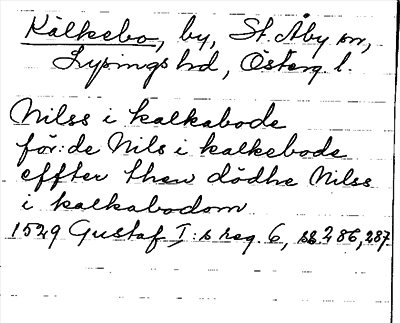 Kälkebo, by, St. Åby sn,
Lysings hd, Österg. l.
Nilss i kalkabode
för:de Nils i kalkebode
effter then dödhe Nilss
i kalkabodom
1529 Gustaf I:s reg. 6, ss 286, 287